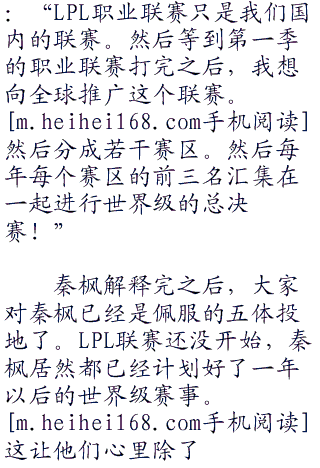 ：“LPL职业联赛只是我们国
内的联赛。然后等到第一季
的职业联赛打完之后，我想
向全球推广这个联赛。
[m.heihei168.com手机阅读]
然后分成若干赛区。然后每
年每个赛区的前三名汇集在
一起进行世界级的总决
赛！”
秦枫解释完之后，大家
对秦枫已经是佩服的五体投
地了。LPL联赛还没开始，秦
枫居然都已经计划好了一年
以后的世界级赛事。
[m.heihei168.com手机阅读]
这让他们心里除了